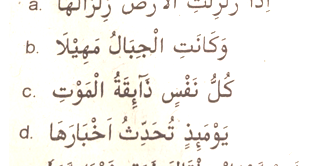 a. اِذَا زُلْزِلَتِ الْاَرْضُ زِلْزَالَهَا
b. وَكَانَتِ الْجِبَالُ مَهِيْلًا
c. كُلُّ نَفْسٍ ذَآىِٕقَةُ الْمَوْتِ
d. يَوْمَىِٕذٍ تُحَدِّثُ اَخْبَارَهَا